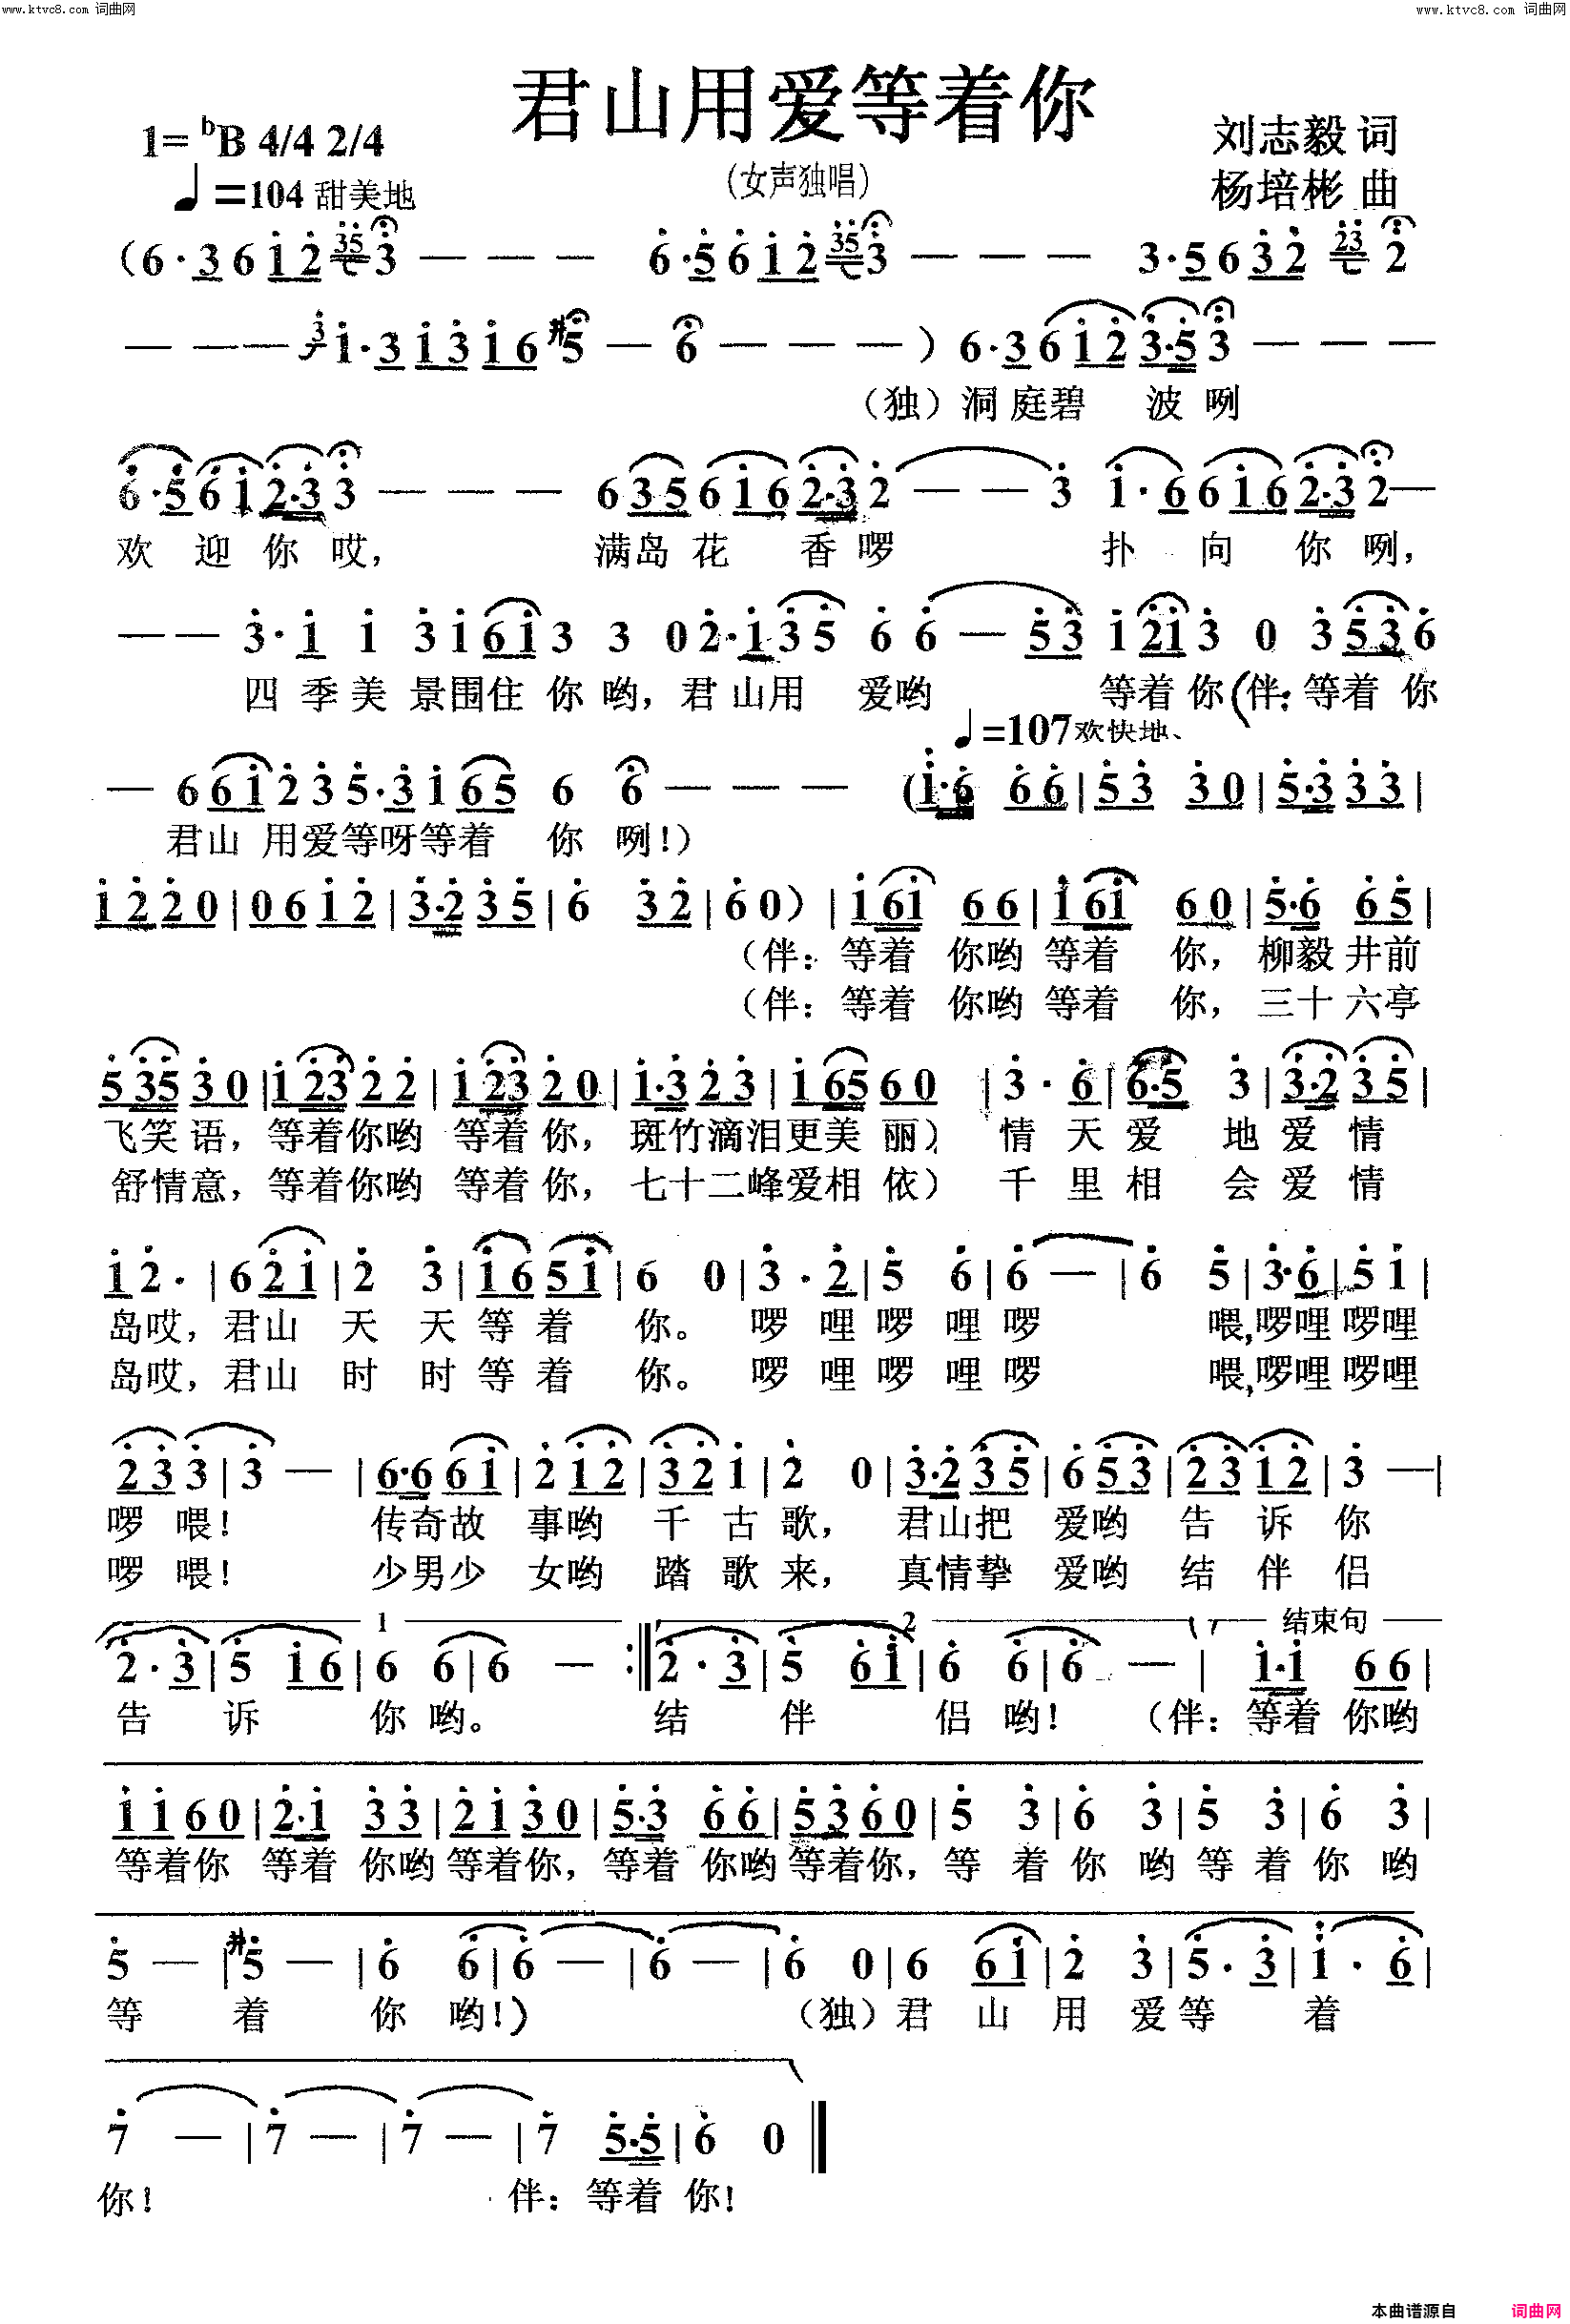 www.ktvc8.com 词曲网
www.ktvc8.com 词曲网
君山用爱等着你
1=ᵇB 4/4 2/4
刘志毅 词
♩=104 甜美地
(女声独唱)
杨培彬 曲
(6·3 6 1 2 35 3 — — — 6·5 6 1 2 35 3 — — — 3·5 6 3 2 23 2
— — — 3 1·3 1 3 1 6 #5 — 6 — — —) 6·3 6 1 2 3·5 3 — — —
(独)洞庭碧 波咧
6·5 6 1 2·3 3 — — — 6 3 5 6 1 6 2·3 2 — — 3 1·6 6 1 6 2·3 2 —
欢 迎 你 哎, 满岛花 香啰 扑 向 你 咧,
— — 3·1 1 3 1 6 1 3 3 0 2·1 3 5 6 6 — 5 3 1 2 1 3 0 3 5 3 6
四季美 景围住 你 哟, 君山用 爱哟 等着你(伴:等着 你
♩=107 欢快地、
— 6 6 1 2 3 5·3 1 6 5 6 6 — — — (1·6 6 6 | 5 3 3 0 | 5·3 3 3 |
君山 用爱等呀等着 你 咧!)
1 2 2 0 | 0 6 1 2 | 3·2 3 5 | 6 3 2 | 6 0) | 1 6 1 6 6 | 1 6 1 6 0 | 5·6 6 5 |
(伴:等着 你哟 等着 你, 柳毅 井前
(伴:等着 你哟 等着 你, 三十 六亭
5 3 5 3 0 | 1 2 3 2 2 | 1 2 3 2 0 | 1·3 2 3 | 1 6 5 6 0 | 3·6 | 6·5 3 | 3·2 3 5 |
飞笑语, 等着你哟 等着你, 斑竹滴泪更美 丽) 情 天 爱 地 爱 情
舒情意, 等着你哟 等着你, 七十二峰爱相 依) 千 里 相 会 爱 情
1 2· | 6 2 1 | 2 3 | 1 6 5 1 | 6 0 | 3·2 | 5 6 | 6 — | 6 5 | 3·6 | 5 1 |
岛哎, 君山 天 天 等 着 你。 啰 哩 啰 哩 啰 喂,啰哩 啰哩
岛哎, 君山 时 时 等 着 你。 啰 哩 啰 哩 啰 喂,啰哩 啰哩
2 3 3 | 3 — | 6·6 6 1 | 2 1 2 | 3 2 1 | 2 0 | 3·2 3 5 | 6 5 3 | 2 3 1 2 | 3 — |
啰 喂! 传奇故 事哟 千 古 歌, 君山把 爱哟 告 诉 你
啰 喂! 少男少 女哟 踏 歌 来, 真情挚 爱哟 结 伴 侣
1 2 结束句
2·3 | 5 1 6 | 6 6 | 6 — :‖ 2·3 | 5 6 1 | 6 6 | 6 — | 1·1 6 6 |
告 诉 你 哟。 结 伴 侣 哟! (伴:等着 你哟
1 1 6 0 | 2·1 3 3 | 2 1 3 0 | 5·3 6 6 | 5 3 6 0 | 5 3 | 6 3 | 5 3 | 6 3 |
等着你 等着 你哟 等着你, 等着 你哟 等着你, 等 着 你 哟 等 着 你 哟
5 — | #5 — | 6 6 | 6 — | 6 — | 6 0 | 6 6 1 | 2 3 | 5·3 | 1·6 |
等 着 你 哟!) (独)君 山 用 爱 等 着
7 — | 7 — | 7 — | 7 5·5 | 6 0 ‖
你! 伴:等着 你!
本曲谱源自 词曲网